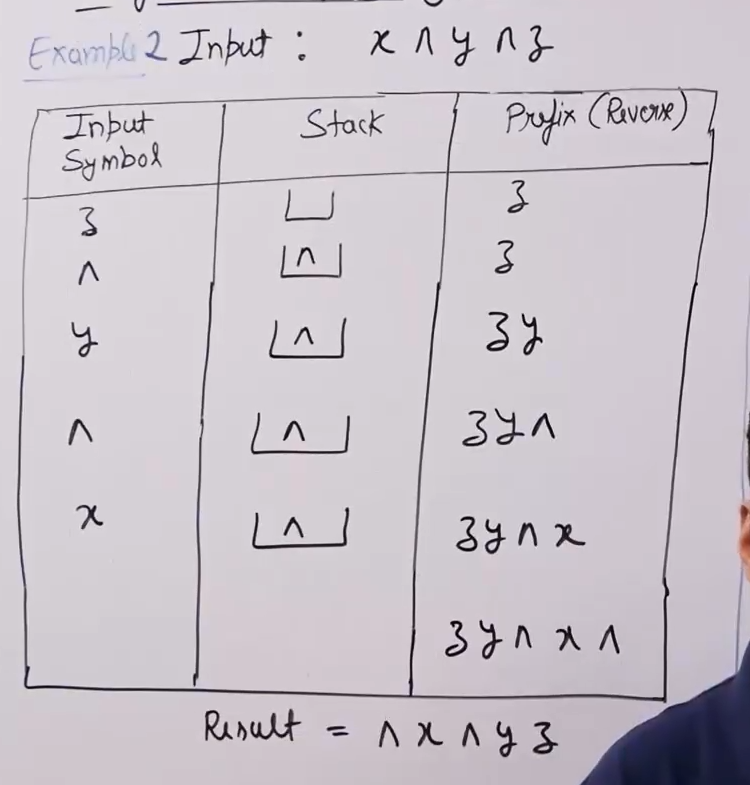 Example 2 Input : x ∧ y ∧ z
Input Symbol Stack Prefix (Reverse)
z z
∧ ∧ z
y ∧ zy
∧ ∧ zy∧
x ∧ zy∧x
zy∧x∧
Result = ∧x∧yz